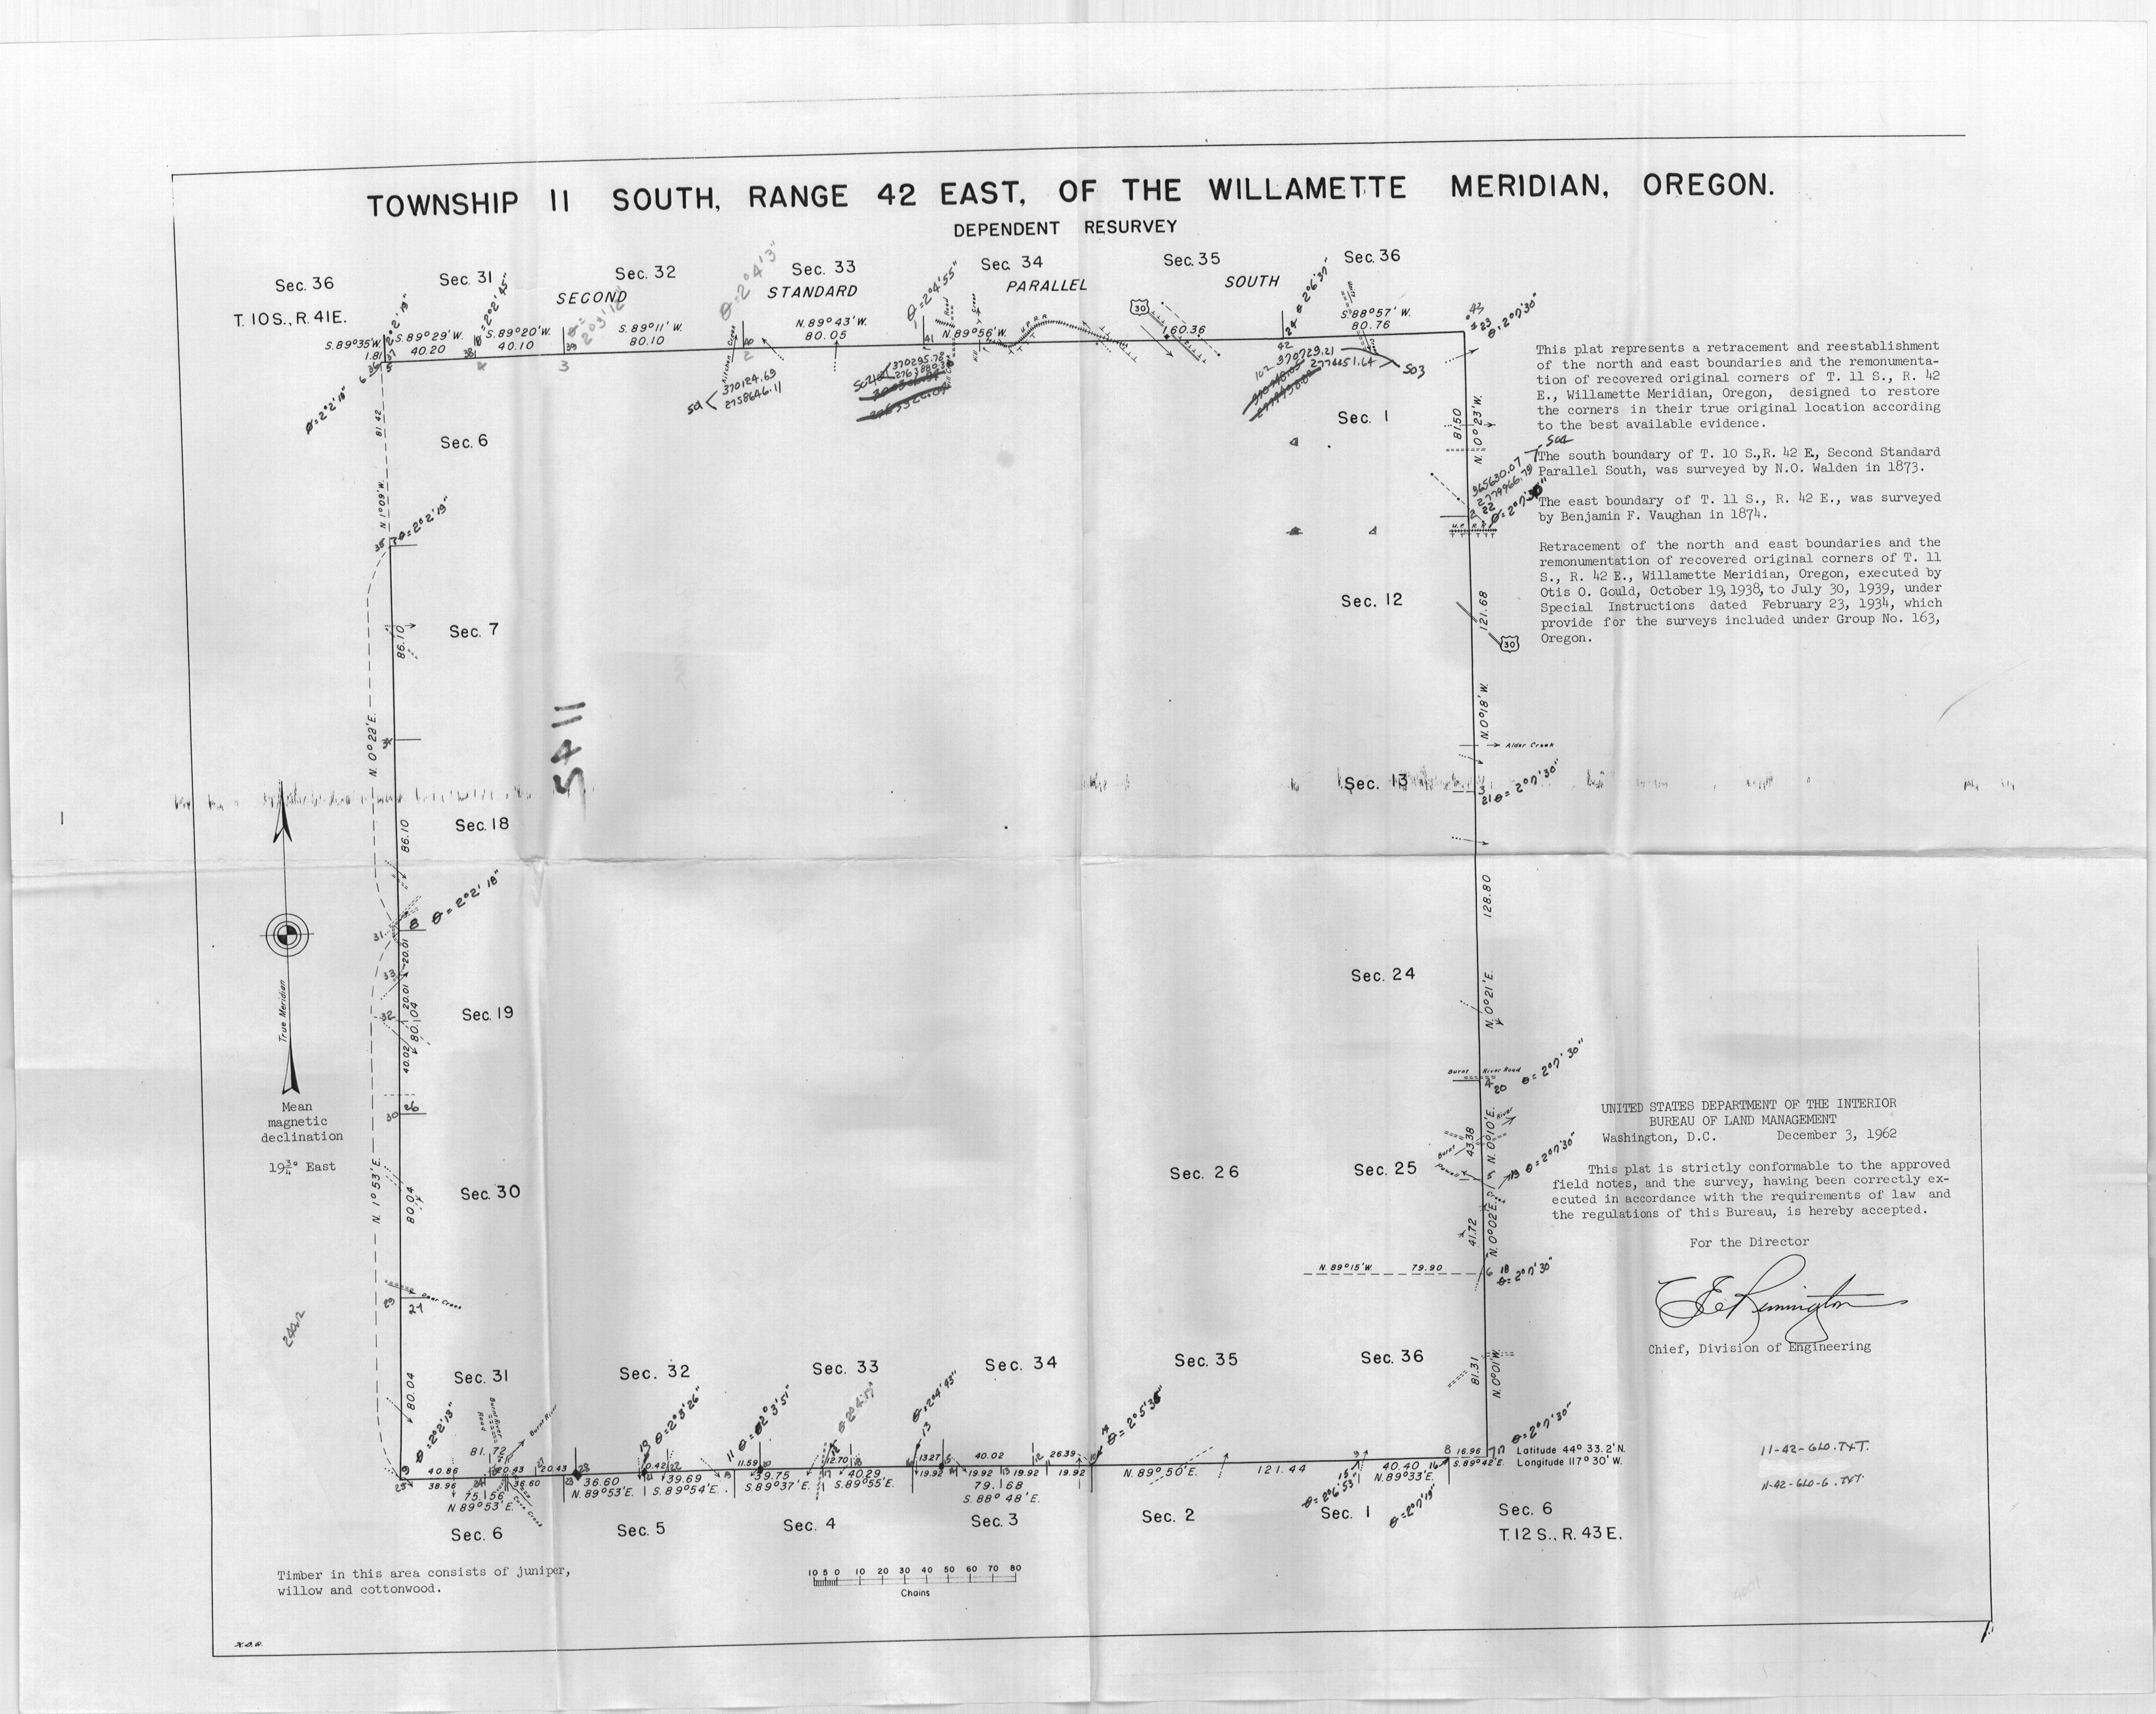 TOWNSHIP 11 SOUTH, RANGE 42 EAST, OF THE WILLAMETTE MERIDIAN, OREGON.
DEPENDENT RESURVEY
Sec. 36
Sec. 31
Sec. 32
Sec. 33
Sec. 34
Sec. 35
Sec. 36
T. 10 S., R. 41 E.
SECOND STANDARD PARALLEL SOUTH
S. 89° 35' W.
1.81
S. 89° 29' W.
40.20
S. 89° 20' W.
40.10
S. 89° 11' W.
80.10
N. 89° 43' W.
80.05
N. 89° 56' W.
160.36
S. 88° 57' W.
80.76
θ = 2° 2' 19"
θ = 2° 2' 45"
θ = 2° 3' 12"
θ = 2° 4' 3"
θ = 2° 4' 55"
θ = 2° 6' 37"
θ = 2° 7' 30"
U.P.R.R.
30
370124.69
2758646.11
370295.78
370729.21
2774451.64
503
This plat represents a retracement and reestablishment
of the north and east boundaries and the remonumenta-
tion of recovered original corners of T. 11 S., R. 42
E., Willamette Meridian, Oregon, designed to restore
the corners in their true original location according
to the best available evidence.
504
The south boundary of T. 10 S., R. 42 E., Second Standard
Parallel South, was surveyed by N.O. Walden in 1873.
The east boundary of T. 11 S., R. 42 E., was surveyed
by Benjamin F. Vaughan in 1874.
Retracement of the north and east boundaries and the
remonumentation of recovered original corners of T. 11
S., R. 42 E., Willamette Meridian, Oregon, executed by
Otis O. Gould, October 19, 1938, to July 30, 1939, under
Special Instructions dated February 23, 1934, which
provide for the surveys included under Group No. 163,
Oregon.
θ = 2° 2' 18"
81.42
N. 1° 09' W.
Sec. 6
Sec. 1
81.50
N. 0° 23' W.
365630.07
2779966.79
θ = 2° 7' 30"
U.P.R.R.
θ = 2° 2' 19"
Sec. 7
86.10
N. 0° 22' E.
Sec. 12
121.68
30
N. 0° 18' W.
Alder Creek
SA 11
Sec. 13
θ = 2° 7' 30"
Sec. 18
86.10
128.80
θ = 2° 2' 18"
20.01
20.01
80.04
40.02
Sec. 19
Sec. 24
N. 0° 21' E.
True Meridian
Mean
magnetic
declination
19¾° East
Burnt River Road
θ = 2° 7' 30"
N. 0° 10' E.
43.38
Burnt River
Powell
θ = 2° 7' 30"
Sec. 30
80.04
N. 1° 53' E.
Sec. 26
Sec. 25
41.72
N. 0° 02' E.
N. 89° 15' W. 79.90
θ = 2° 7' 30"
UNITED STATES DEPARTMENT OF THE INTERIOR
BUREAU OF LAND MANAGEMENT
Washington, D.C. December 3, 1962
This plat is strictly conformable to the approved
field notes, and the survey, having been correctly ex-
ecuted in accordance with the requirements of law and
the regulations of this Bureau, is hereby accepted.
For the Director
Chief, Division of Engineering
Sec. 31
Sec. 32
Sec. 33
Sec. 34
Sec. 35
Sec. 36
80.04
81.31
N. 0° 01' W.
θ = 2° 2' 13"
θ = 2° 3' 26"
θ = 2° 3' 51"
θ = 2° 4' 17"
θ = 2° 4' 43"
θ = 2° 5' 35"
θ = 2° 7' 30"
Burnt River
81.72
40.86
20.43
20.43
38.96
36.60
75.56
N. 89° 53' E.
36.60
N. 89° 53' E.
0.42
39.69
S. 89° 54' E.
11.59
39.75
S. 89° 37' E.
12.70
40.29
S. 89° 55' E.
13.27
40.02
26.39
19.92
19.92
19.92
19.92
79.68
S. 88° 48' E.
N. 89° 50' E. 121.44
40.40
N. 89° 33' E.
16.96
S. 89° 42' E.
θ = 2° 6' 53"
θ = 2° 7' 19"
Latitude 44° 33.2' N.
Longitude 117° 30' W.
11-42-GLO.TXT.
11-42-GLO-G.TXT.
Sec. 6
Sec. 5
Sec. 4
Sec. 3
Sec. 2
Sec. 1
Sec. 6
T. 12 S., R. 43 E.
Timber in this area consists of juniper,
willow and cottonwood.
10 5 0 10 20 30 40 50 60 70 80
Chains